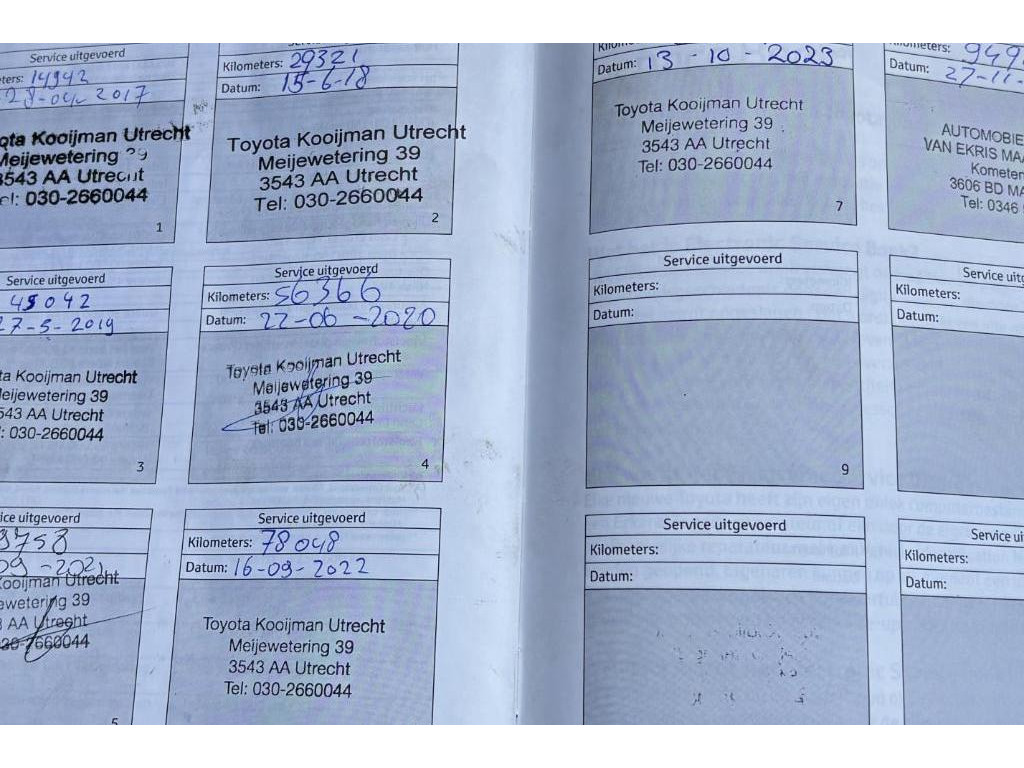 Service uitgevoerd
14942
28-04-2017
Toyota Kooijman Utrecht
Meijewetering 39
3543 AA Utrecht
Tel: 030-2660044
1
Kilometers: 29321
Datum: 15-6-18
Toyota Kooijman Utrecht
Meijewetering 39
3543 AA Utrecht
Tel: 030-2660044
2
Service uitgevoerd
45042
27-5-2019
ta Kooijman Utrecht
Meijewetering 39
543 AA Utrecht
: 030-2660044
3
Service uitgevoerd
Kilometers: 56366
Datum: 22-06-2020
Toyota Kooijman Utrecht
Meijewetering 39
3543 AA Utrecht
Tel: 030-2660044
4
ice uitgevoerd
3758
09-2021
Kooijman Utrecht
ewetering 39
AA Utrecht
030-2660044
5
Service uitgevoerd
Kilometers: 78048
Datum: 16-09-2022
Toyota Kooijman Utrecht
Meijewetering 39
3543 AA Utrecht
Tel: 030-2660044
Datum: 13-10-2023
Toyota Kooijman Utrecht
Meijewetering 39
3543 AA Utrecht
Tel: 030-2660044
7
meters: 949
Datum: 27-11-
AUTOMOBIE
VAN EKRIS MAA
Kometen
3606 BD MA
Tel: 0346
Service uitgevoerd
Kilometers:
Datum:
9
Service uitg
Kilometers:
Datum:
Service uitgevoerd
Kilometers:
Datum:
Service ui
Kilometers:
Datum: